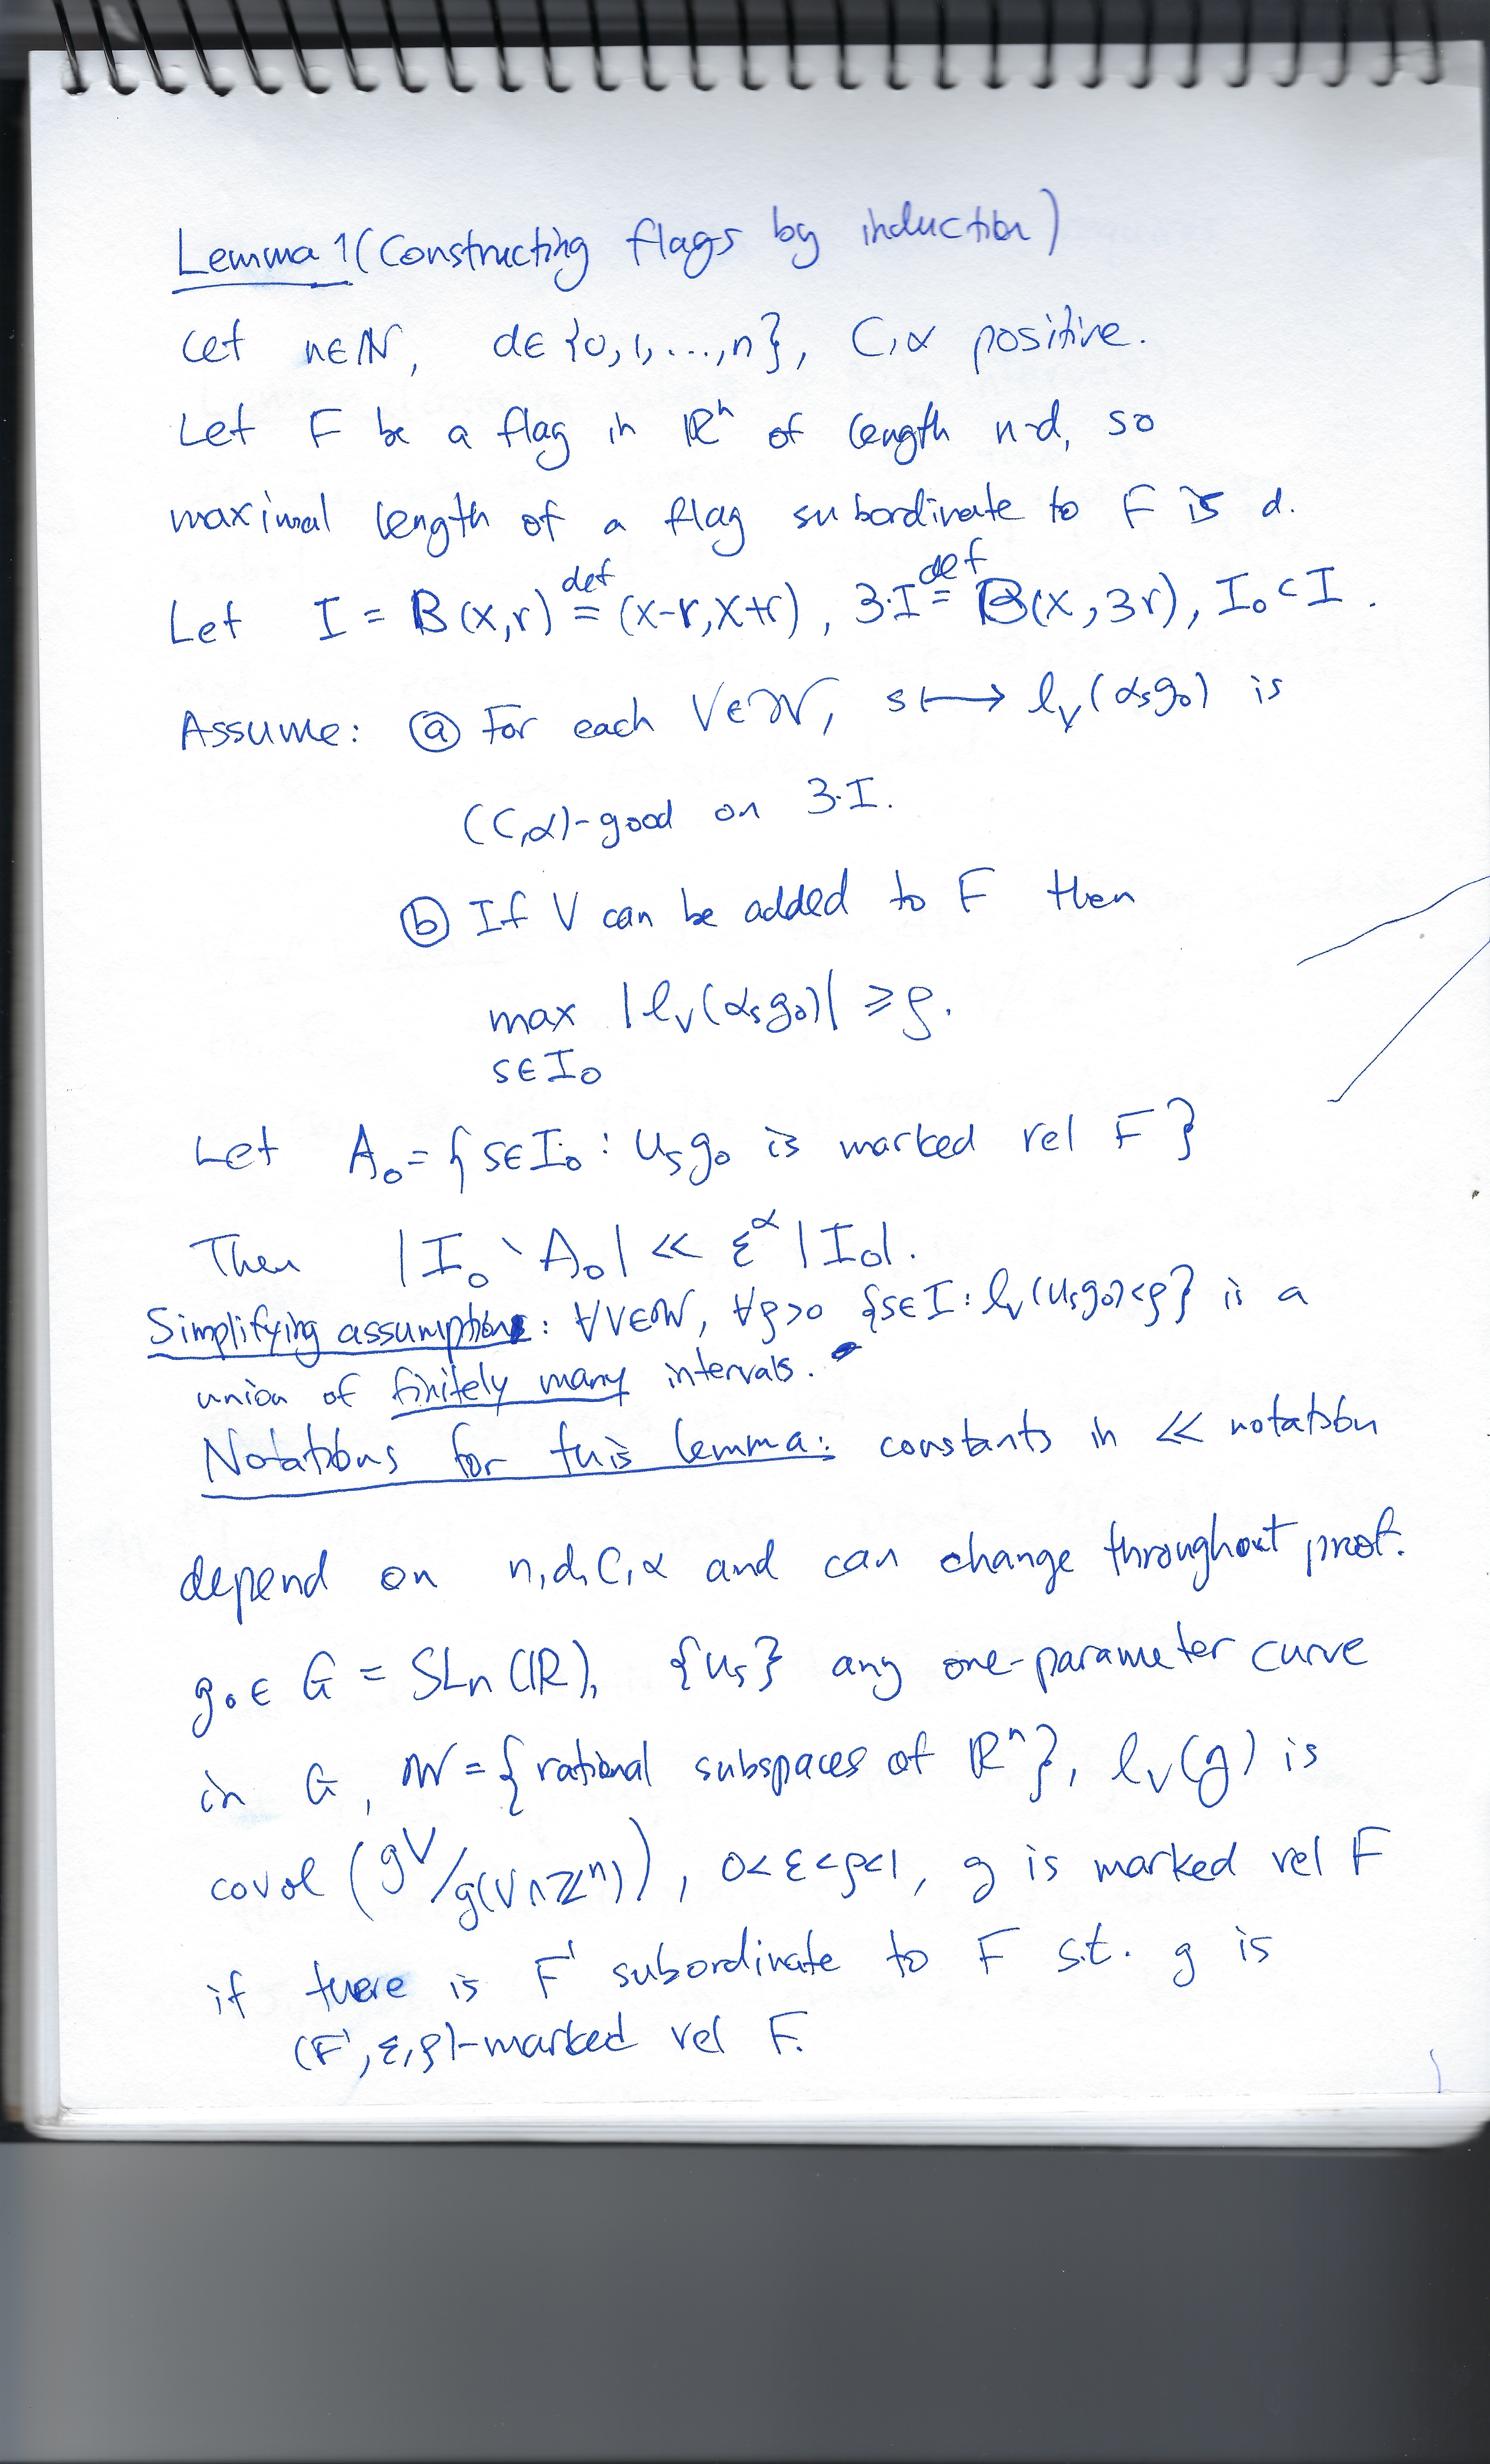 Lemma 1 (Constructing flags by induction)
Let n∈ℕ, d∈{0,1,...,n}, C,α positive.
Let F be a flag in ℝⁿ of length n-d, so
maximal length of a flag subordinate to F is d.
Let I = B(x,r) def= (x-r,x+r), 3·I def= B(x,3r), I₀⊂I.
Assume: ⓐ For each V∈𝒲, s⟼ℓ_V(α_s g₀) is
(C,α)-good on 3·I.
ⓑ If V can be added to F then
max |ℓ_V(α_s g₀)| ⩾ ρ.
s∈I₀
Let A₀={s∈I₀ : u_s g₀ is marked rel F}
Then |I₀∖A₀| ≪ ε^α |I₀|.
Simplifying assumption: ∀V∈𝒲, ∀ρ>0 {s∈I : ℓ_V(u_s g₀)<ρ} is a
union of finitely many intervals.
Notations for this lemma: constants in ≪ notation
depend on n,d,C,α and can change throughout proof.
g₀∈ G = SLn(ℝ), {u_s} any one-parameter curve
in G, 𝒲={rational subspaces of ℝⁿ}, ℓ_V(g) is
covol (gV/g(V∩ℤⁿ)), 0<ε<ρ<1, g is marked rel F
if there is F' subordinate to F s.t. g is
(F',ε,ρ)-marked rel F.